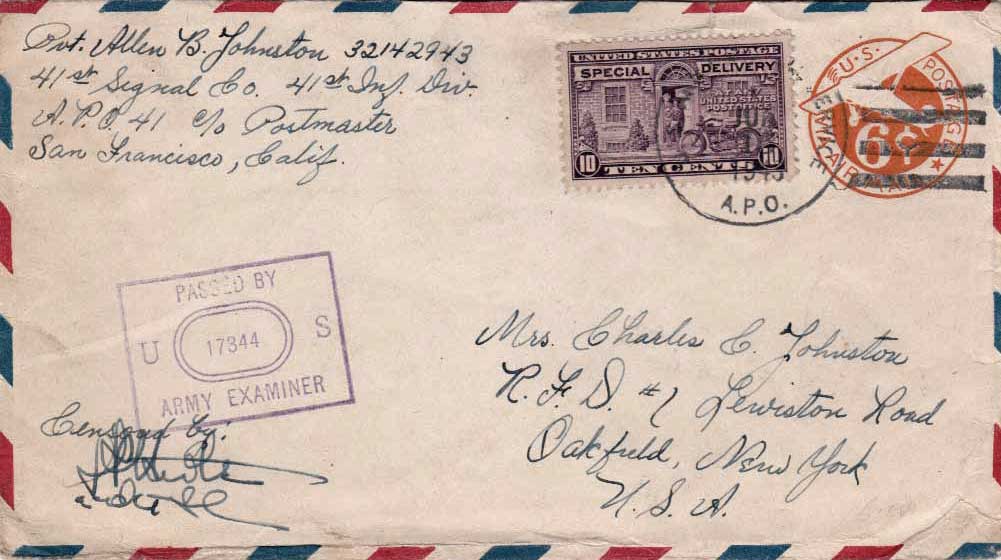 Pvt. Allen B. Johnston 32142943
41st Signal Co. 41st Inf. Div.
A.P.O. 41 c/o Postmaster
San Francisco, Calif.
UNITED STATES POSTAGE
SPECIAL DELIVERY
AT ANY
UNITED STATES
POST OFFICE
10 TEN CENTS 10
A.P.O.
U.S. POSTAGE
6¢
AIR MAIL
PASSED BY
U 17344 S
ARMY EXAMINER
Censored by:
Mrs. Charles C. Johnston
R.F.D. #1 Lewiston Road
Oakfield, New York
U.S.A.